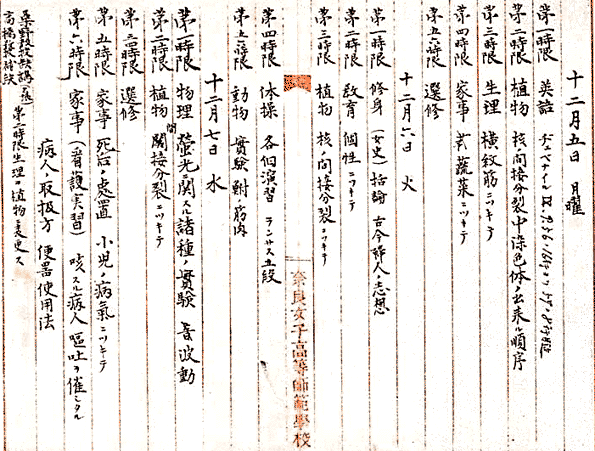 十二月五日 月曜
第一時限 英語
第二時限 植物 核ノ間接分裂中染色体ノ出来ル順序
第三時限 生理 横紋筋ニツキテ
第四時限 家事 蔬菜ニツキテ
第五六時限 選修
十二月六日 火
第一時限 修身 (女史)括論 古今婦人ノ思想
第二時限 教育 個性ニツキテ
第三時限 植物 核ノ間接分裂ニツキテ
奈良女子高等師範學校
第四時限 体操 各個演習 ランサス五段
第五六時限 動物 實験 鮒ノ筋肉
十二月七日 水
第一時限 物理 螢光ニ関スル諸種ノ實験 音波動
第二時限 植物 間接分裂ニツキテ
第三四時限 選修
第五時限 家事 死后ノ處置 小児ノ病氣ニツキテ
第六時限 家事 (看護実習) 咳スル病人 嘔吐ヲ催シタル
病人ノ取扱方 便器使用法
桑野教授缺講ニツキ 第二時限生理ヲ植物ニ変更ス
高橋教授缺